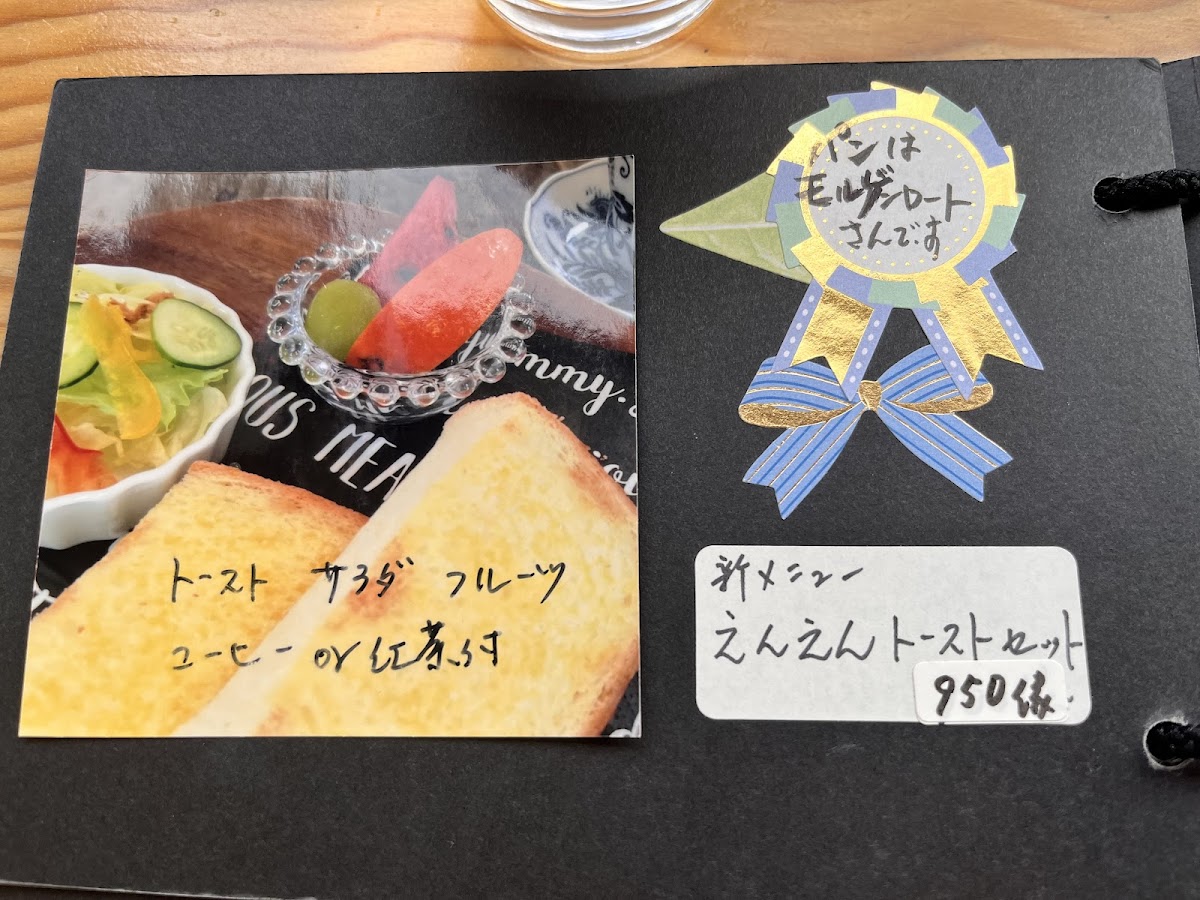 パンは
モルゲンロート
さんです
ummy.
OUS MEA
トースト サラダ フルーツ
コーヒー or 紅茶付
新メニュー
えんえんトーストセット
950縁